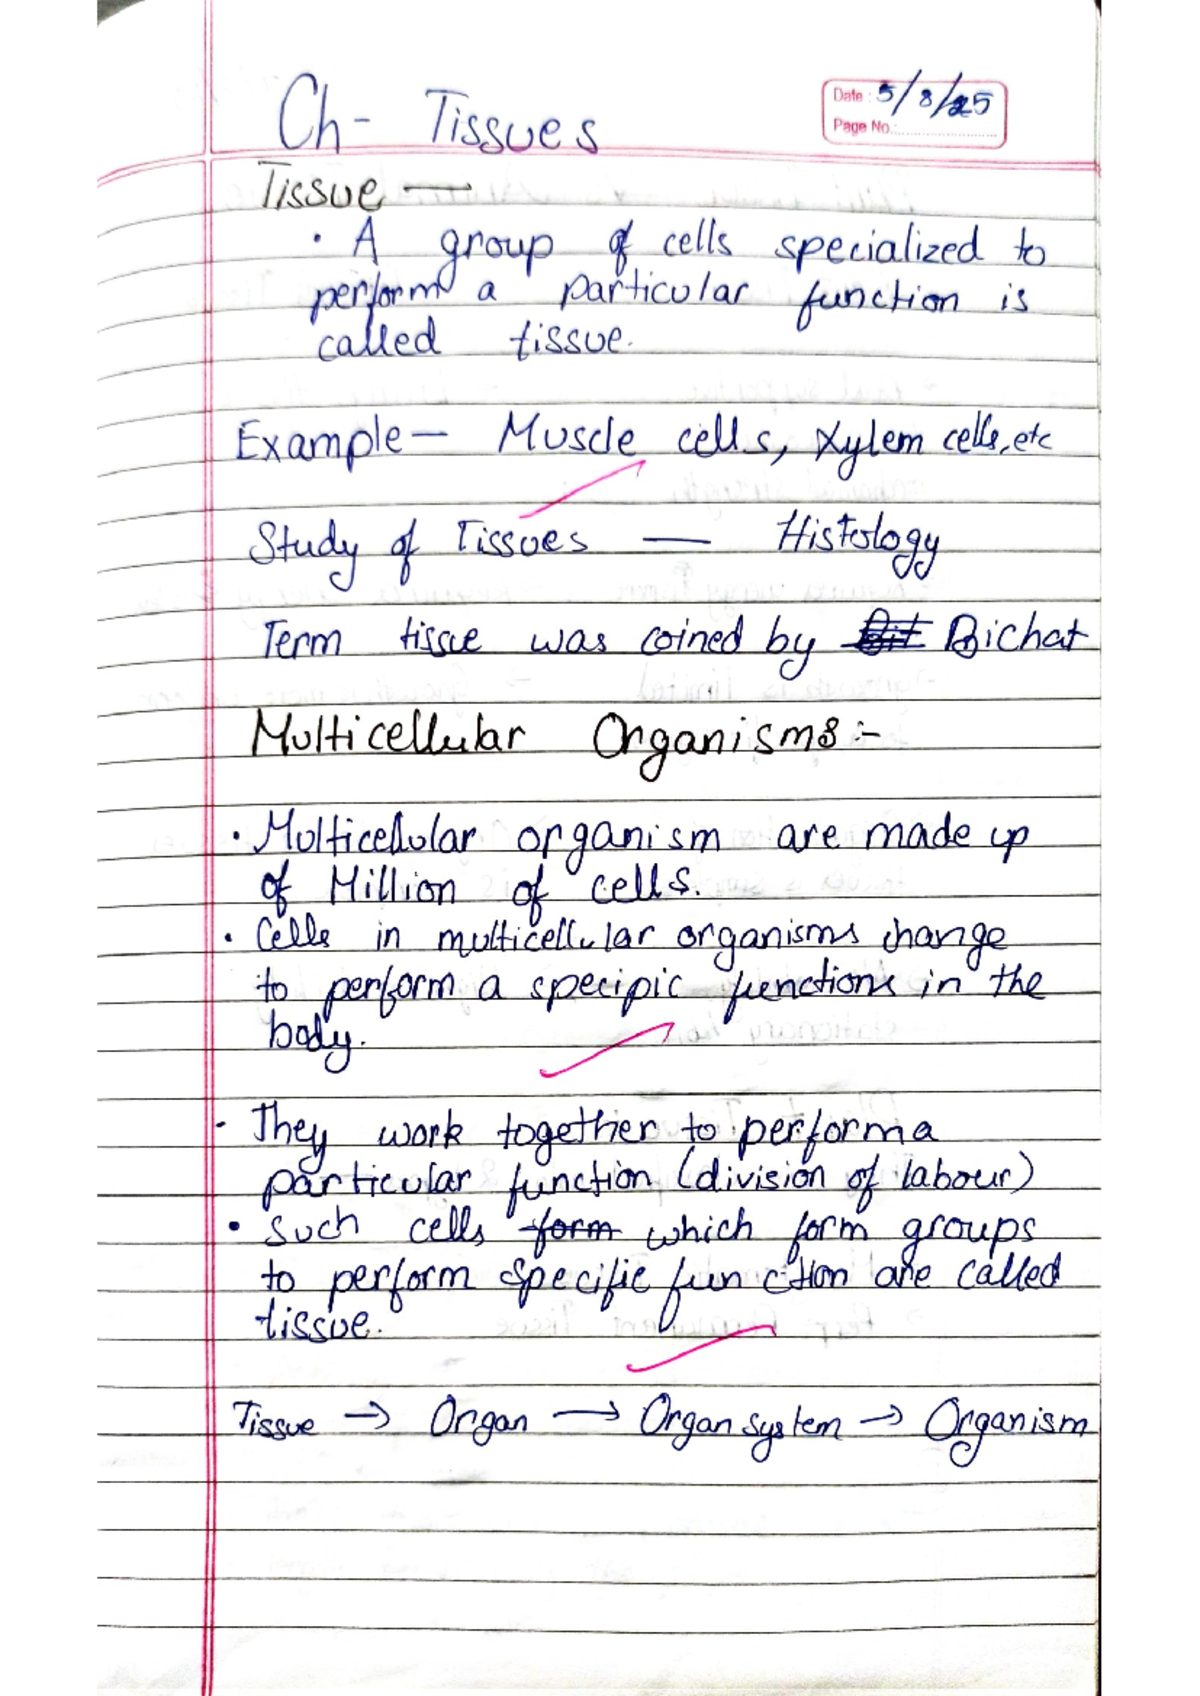 Ch- Tissues
Date : 5/8/25
Page No.:
Tissue —
• A group of cells specialized to
perform a particular function is
called tissue.
Example — Muscle cells, Xylem cells, etc
Study of Tissues — Histology
Term tissue was coined by Bichat
Multicellular Organisms :-
• Multicellular organism are made up
of Million of cells.
• Cells in multicellular organisms change
to perform a specipic functions in the
body.
• They work together to perform a
particular function (division of labour)
• Such cells form which form groups
to perform specific function are called
tissue.
Tissue → Organ → Organ system → Organism